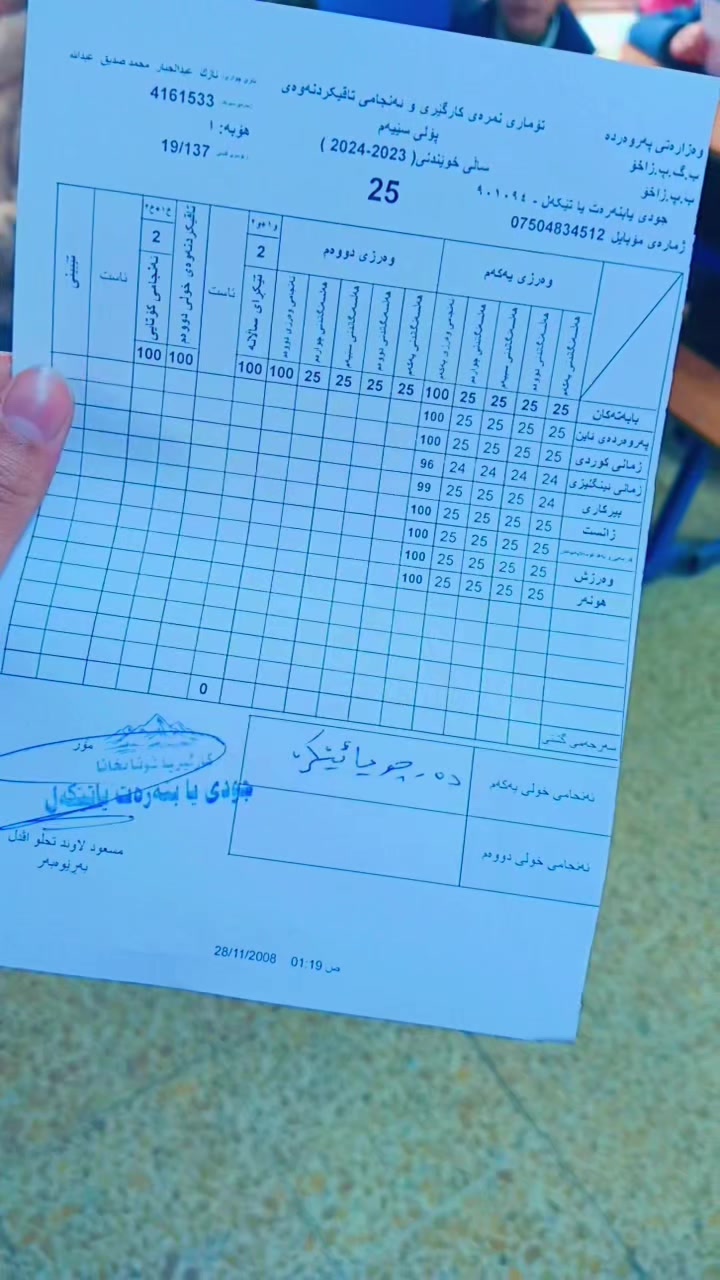 وەزارەتی پەروەردە
ب.گ.پ.زاخۆ
ب.پ.زاخۆ
جودی یابنەرەت یا تێکەل - ٩٠١٠٩٤
ژمارەی مۆبایل 07504834512
تۆماری نمرەی کارگێری و ئەنجامی تاقیکردنەوەی
پۆلی سێیەم
ساڵی خوێندنی( 2023-2024 )
25
نازك عبدالجبار محمد صديق عبدالله
4161533
هۆبە: ١
19/137
وەرزی یەکەم
وەرزی دووەم
هەڵسەنگاندنی یەکەم
هەڵسەنگاندنی دووەم
هەڵسەنگاندنی سێیەم
هەڵسەنگاندنی چوارەم
ئەنجامی وەرزی یەکەم
هەڵسەنگاندنی یەکەم
هەڵسەنگاندنی دووەم
هەڵسەنگاندنی سێیەم
هەڵسەنگاندنی چوارەم
ئەنجامی وەرزی دووەم
و١+و٢
2
تێکڕای ساڵانە
ئاست
تاقیکردنەوەی خولی دووەم
خ١+خ٢
2
ئەنجامی کۆتایی
ئاست
تێبینی
بابەتەکان 25 25 25 25 100 25 25 25 25 100 100 100 100
پەروەردەی ئاین 25 25 25 25 100
زمانی کوردی 25 25 25 25 100
زمانی ئینگلیزی 24 24 24 24 96
بیرکاری 24 25 25 25 99
زانست 25 25 25 25 100
25 25 25 25 100
وەرزش 25 25 25 25 100
هونەر 25 25 25 25 100
سەرجەمی گشتی 0
ئەنجامی خولی یەکەم
ئەنجامی خولی دووەم
مۆر
جۆدی یا بنەرەت یاتێکەل
مسعود لاوند تحلو افدل
بەڕێوەبەر
28/11/2008 01:19 ص